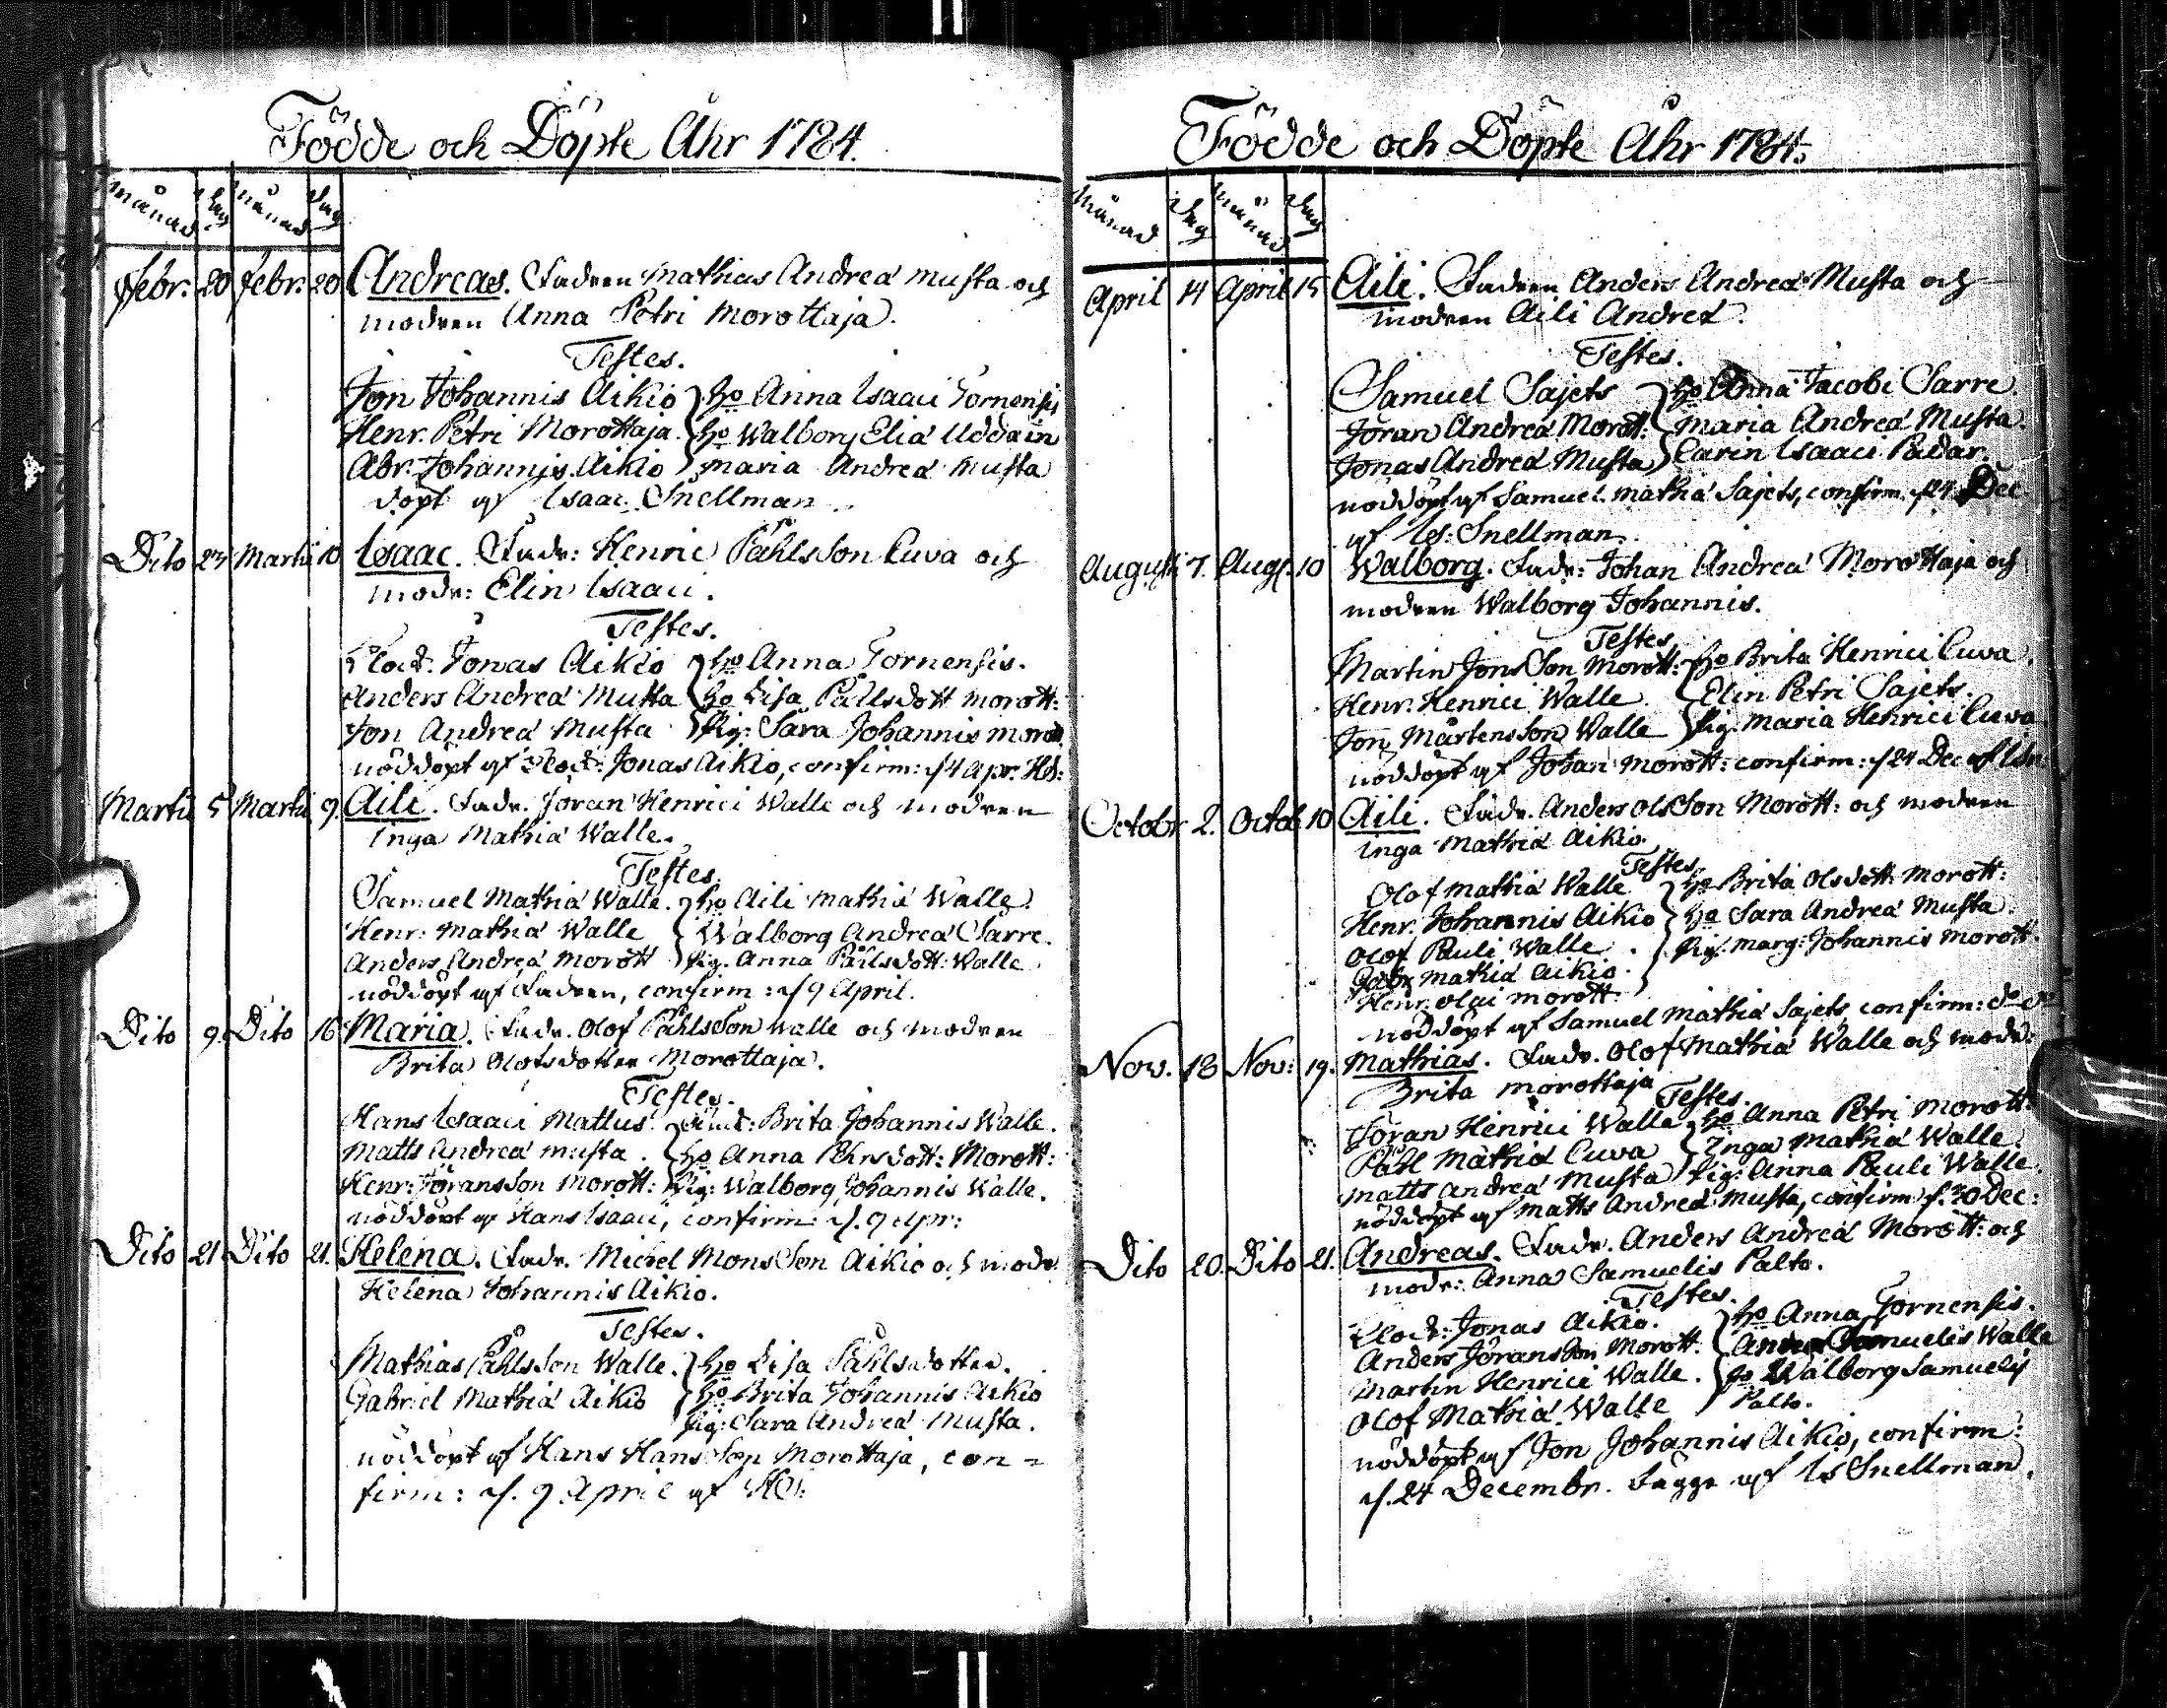 Födde och Döpte Åhr 1784.
Månad Dag Månad Dag
Febr. 20 Febr. 20 Andreas. Fadren Mathias Andreæ Musta och
modren Anna Petri Morottaja.
Testes.
Jon Johannis Aikio } ho Anna Isaaci Tornensis
Henr. Petri Morottaja. } ho Walborg Eliæ Uddain
Abr. Johannis Aikio } Maria Andreæ Musta
döpt af Isaac Snellman.
Dito 23 Martii 10 Isaac. Fadr: Henric Påhlsson Cuva och
modr: Elin Isaaci.
Testes.
Klock: Jonas Aikio } ho Anna Tornensis.
Anders Andreæ Musta } ho Lisa Påhlsdott Morott:
Jon Andreæ Musta } Pig: Sara Johannis Morott
nöddöpt af Klock: Jonas Aikio, confirm: d. 4 Apr.
Martii 5 Martii 9. Aili. Fadr. Jöran Henrici Walle och modren
Inga Mathiæ Walle.
Testes.
Samuel Mathiæ Walle. } ho Aili Mathiæ Walle.
Henr: Mathiæ Walle } Walborg Andreæ Sarre.
Anders Andreæ Morott } Pig. Anna Påhlsdott: Walle
nöddöpt af Fadren, confirm: d 9 April.
Dito 9. Dito 16 Maria. Fadr. Olof Påhlsson Walle och modren
Brita Olofsdotter Morottaja.
Testes.
Hans Isaaci Mattus. } Brita Johannis Walle.
Matts Andreæ Musta. } ho Anna Pehrsdott: Morott:
Henr: Jöransson Morott: } Pig: Walborg Johannis Walle.
nöddöpt af Hans Isaaci, confirm: d. 9 Apr:
Dito 21 Dito 21. Helena. Fadr. Michel Monsson Aikio och modr
Helena Johannis Aikio.
Testes.
Mathias Påhlsson Walle. } ho Lisa Påhlsdotter.
Gabriel Mathiæ Aikio } ho Brita Johannis Aikio
Pig: Sara Andreæ Musta.
nöddöpt af Hans Hansson Morottaja, con-
firm: d. 9. April af
Födde och Döpte Åhr 1784.
Månad Dag Månad Dag
April 14 April 15 Aili. Fadren Anders Andreæ Musta och
modren Aili Andreæ.
Testes.
Samuel Sajets } ho Anna Jacobi Sarre.
Jöran Andreæ Morot: } Maria Andreæ Musta.
Jonas Andreæ Musta } Carin Isaaci Padar.
nöddöpt af Samuel Mathiæ Sajets, confirm. d 24 Dec.
af Is: Snellman.
Augusti 7. Aug. 10 Walborg. Fadr: Johan Andreæ Morottaja och
modren Walborg Johannis.
Testes
Martin Jonsson Morott: } ho Brita Henrici Cuva.
Henr. Henrici Walle } Elin Petri Sajets.
Jon Mårtensson Walle } Pig. Maria Henrici Cuva
nöddöpt af Johan Morott: confirm: d 24 Dec af
Octobr 2. Octob 10 Aili. Fadr. Anders Olsson Morott: och modren
Inga Mathiæ Aikio.
Testes
Olof Mathiæ Walle } ho Brita Olsdott: Morott:
Henr. Johannis Aikio } ho Sara Andreæ Musta.
Olof Pauli Walle. } Pig. Marg: Johannis Morott.
Gabr Mathiæ Aikio.
Henr. Olai Morott.
nöddöpt af Samuel Mathiæ Sajets, confirm: do do
Nov. 18 Nov: 19. Mathias. Fadr. Olof Mathiæ Walle och modr:
Brita Morottaja
Testes.
Jöran Henrici Walle } ho Anna Petri Morott:
Påhl Mathiæ Cuva } Inga Mathiæ Walle.
Matts Andreæ Musta } Pig: Anna Pauli Walle.
nöddöpt af Matts Andreæ Musta, confirm: d. 30 Dec:
Dito 20. Dito 21. Andreas. Fadr. Anders Andreæ Morott: och
modr: Anna Samuelis Palto.
Testes.
Klock: Jonas Aikio. } ho Anna Tornensis.
Anders Jöransson Morott. } Samuelis Walle
Martin Henrici Walle. } ho Walborg Samuelis
Olof Mathiæ Walle } Palto.
nöddöpt af Jon Johannis Aikio, confirm:
d. 24 Decembr. af Is Snellman.